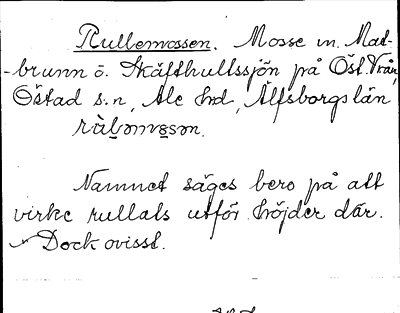 Rullemossen. Mosse m. Mad-
-brunn ö. Skäfthultssjön på Öst. Vrån,
Östad s:n, Ale hrd, Älfsborgs län
Namnet säges bero på att
virke rullats utför höjder där.
Dock ovisst.